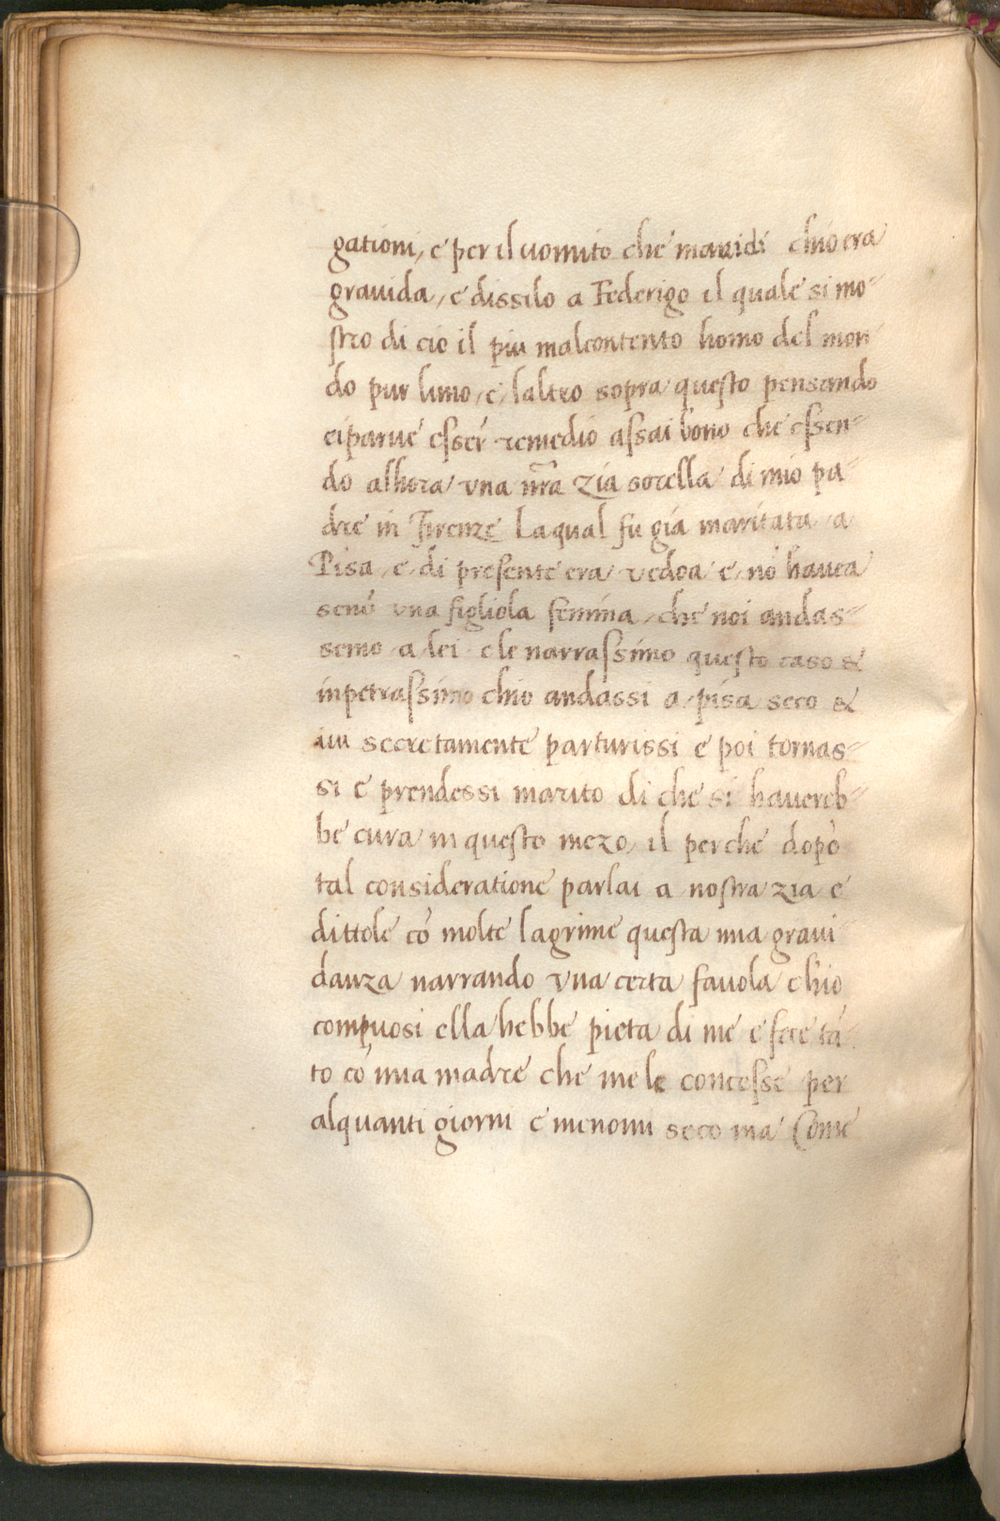 gationi, e per il uomito che mauidi chio era
grauida, e dissilo a Federigo il quale si mo-
stro di cio il piu malcontento homo del mon-
do pur luno, e, laltro sopra questo pensando
ci parue esser remedio assai bono che essen-
do alhora una nr̃a Zia sorella di mio pa-
dre in Firenze Laqual fu gia maritata a
Pisa, e di presente era vedoa e nō hauea
senō vna figliola femina, che noi andas-
semo a lei e le narrassimo questo caso &
inpetrassimo chio andassi a pisa seco &
iui secretamente parturissi e poi tornas-
si e prendessi marito di che si hauereb-
be cura in questo mezo, il perche dopo
tal consideratione parlai a nostra zia e
dittole cō molte lagrime questa mia graui
danza narrando vna certa fauola chio
compuosi ella hebbe pieta di me e fece tā
to cō mia madre che me le concesse per
alquanti giorni e menomi seco ma Come